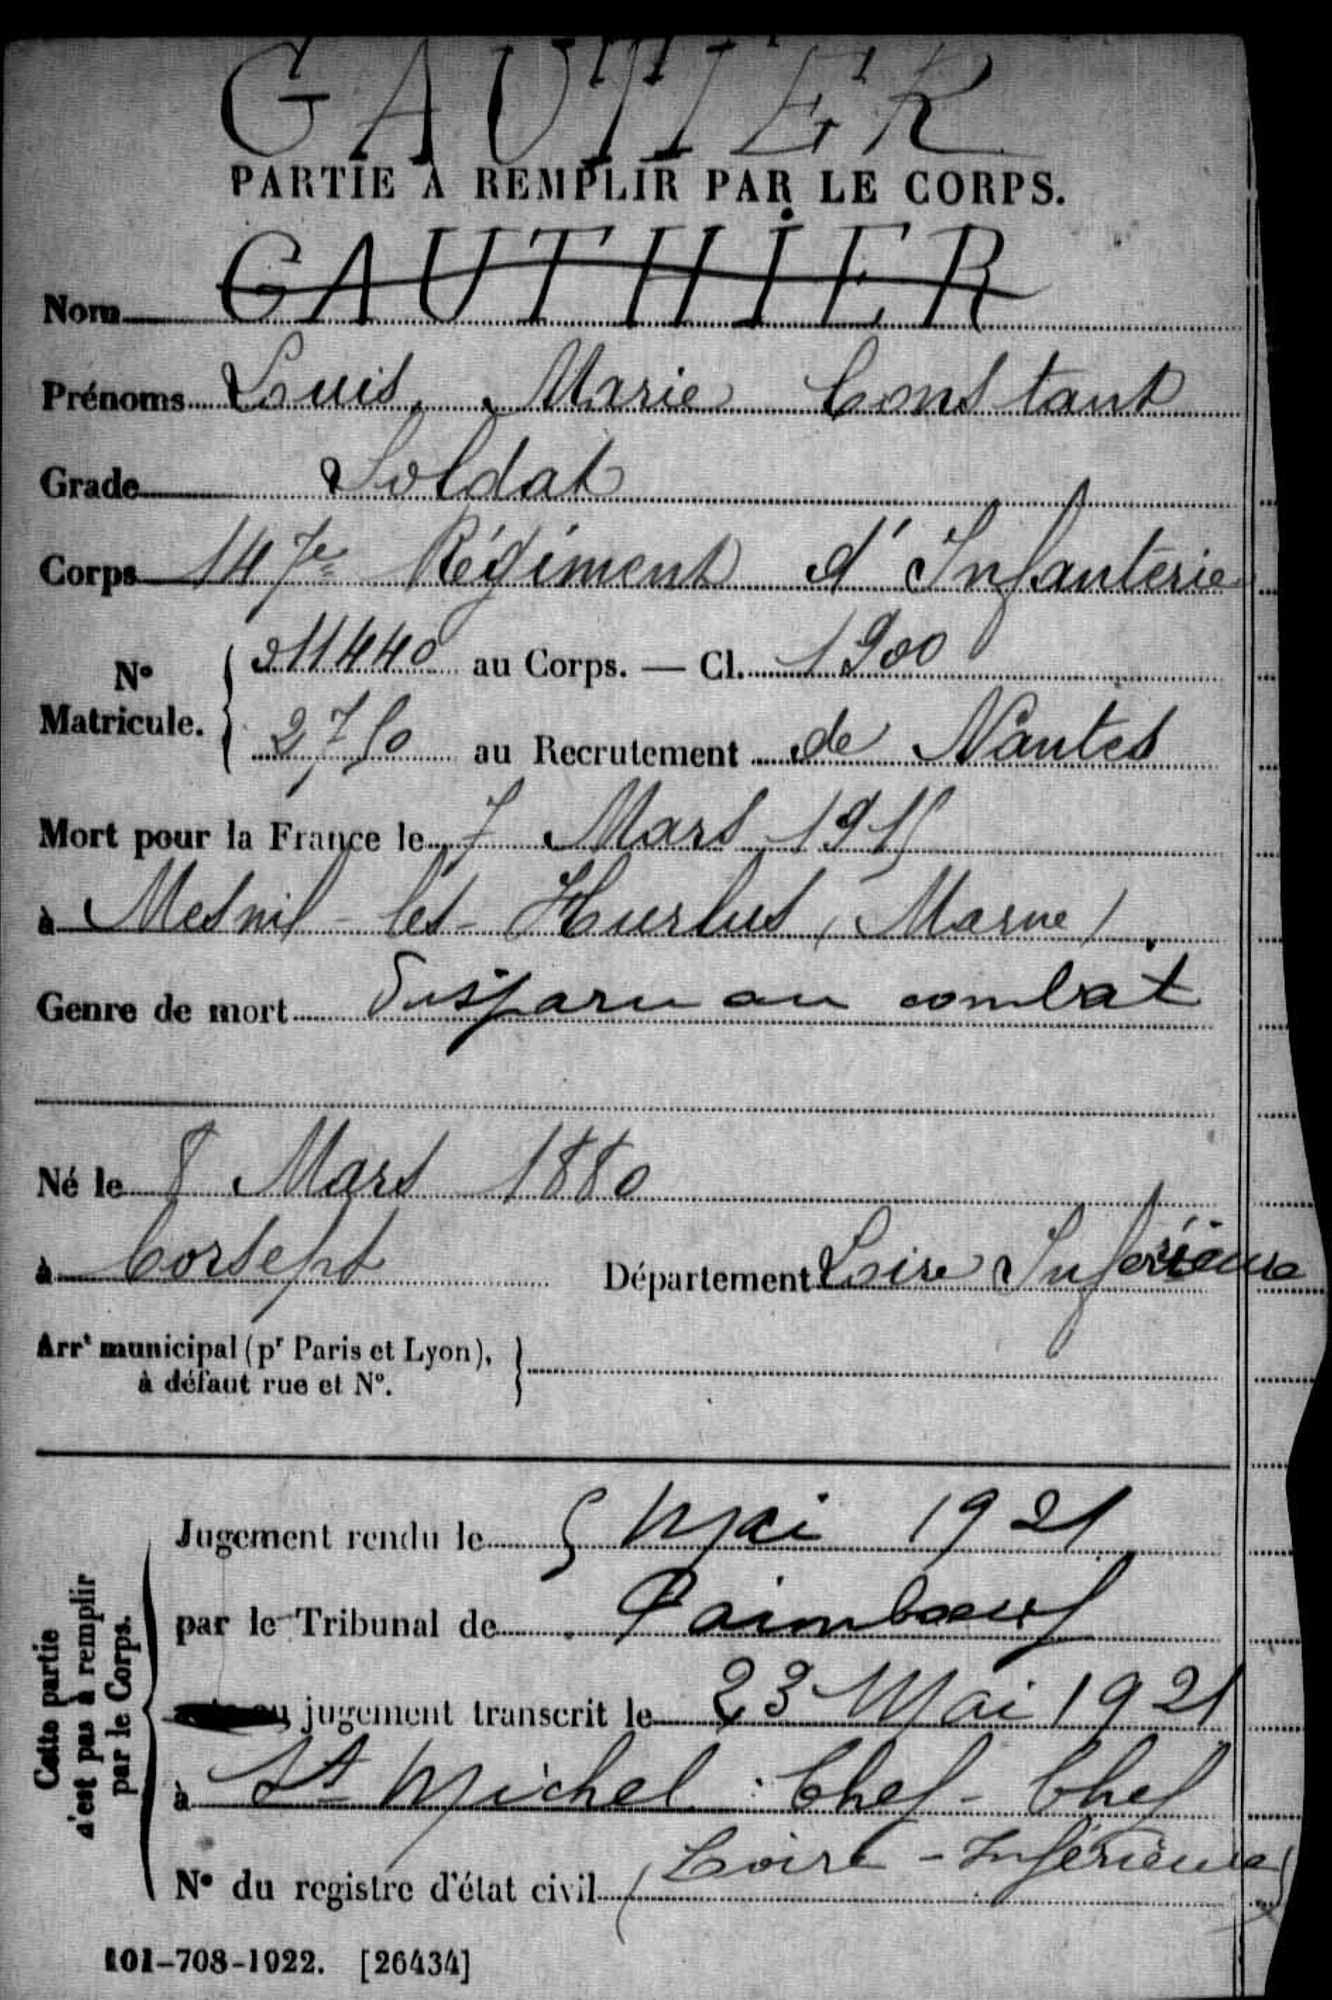 GAUTIER
PARTIE À REMPLIR PAR LE CORPS.
Nom GAUTHIER
Prénoms Louis, Marie Constant
Grade Soldat
Corps 147e Régiment d'Infanterie
N° Matricule. 11440 au Corps. — Cl. 1900
2750 au Recrutement de Nantes
Mort pour la France le 7 Mars 1915
à Mesnil-lès-Hurlus (Marne)
Genre de mort Disparu au combat
Né le 8 Mars 1880
à Corsept Département Loire Inférieure
Arrt municipal (pr Paris et Lyon),
à défaut rue et N°.
Cette partie
n'est pas à remplir
par le Corps.
Jugement rendu le 5 Mai 1921
par le Tribunal de Paimboeuf
jugement transcrit le 23 Mai 1921
à St Michel Chef-Chef
(Loire-Inférieure)
N° du registre d'état civil
101-708-1922. [26434]